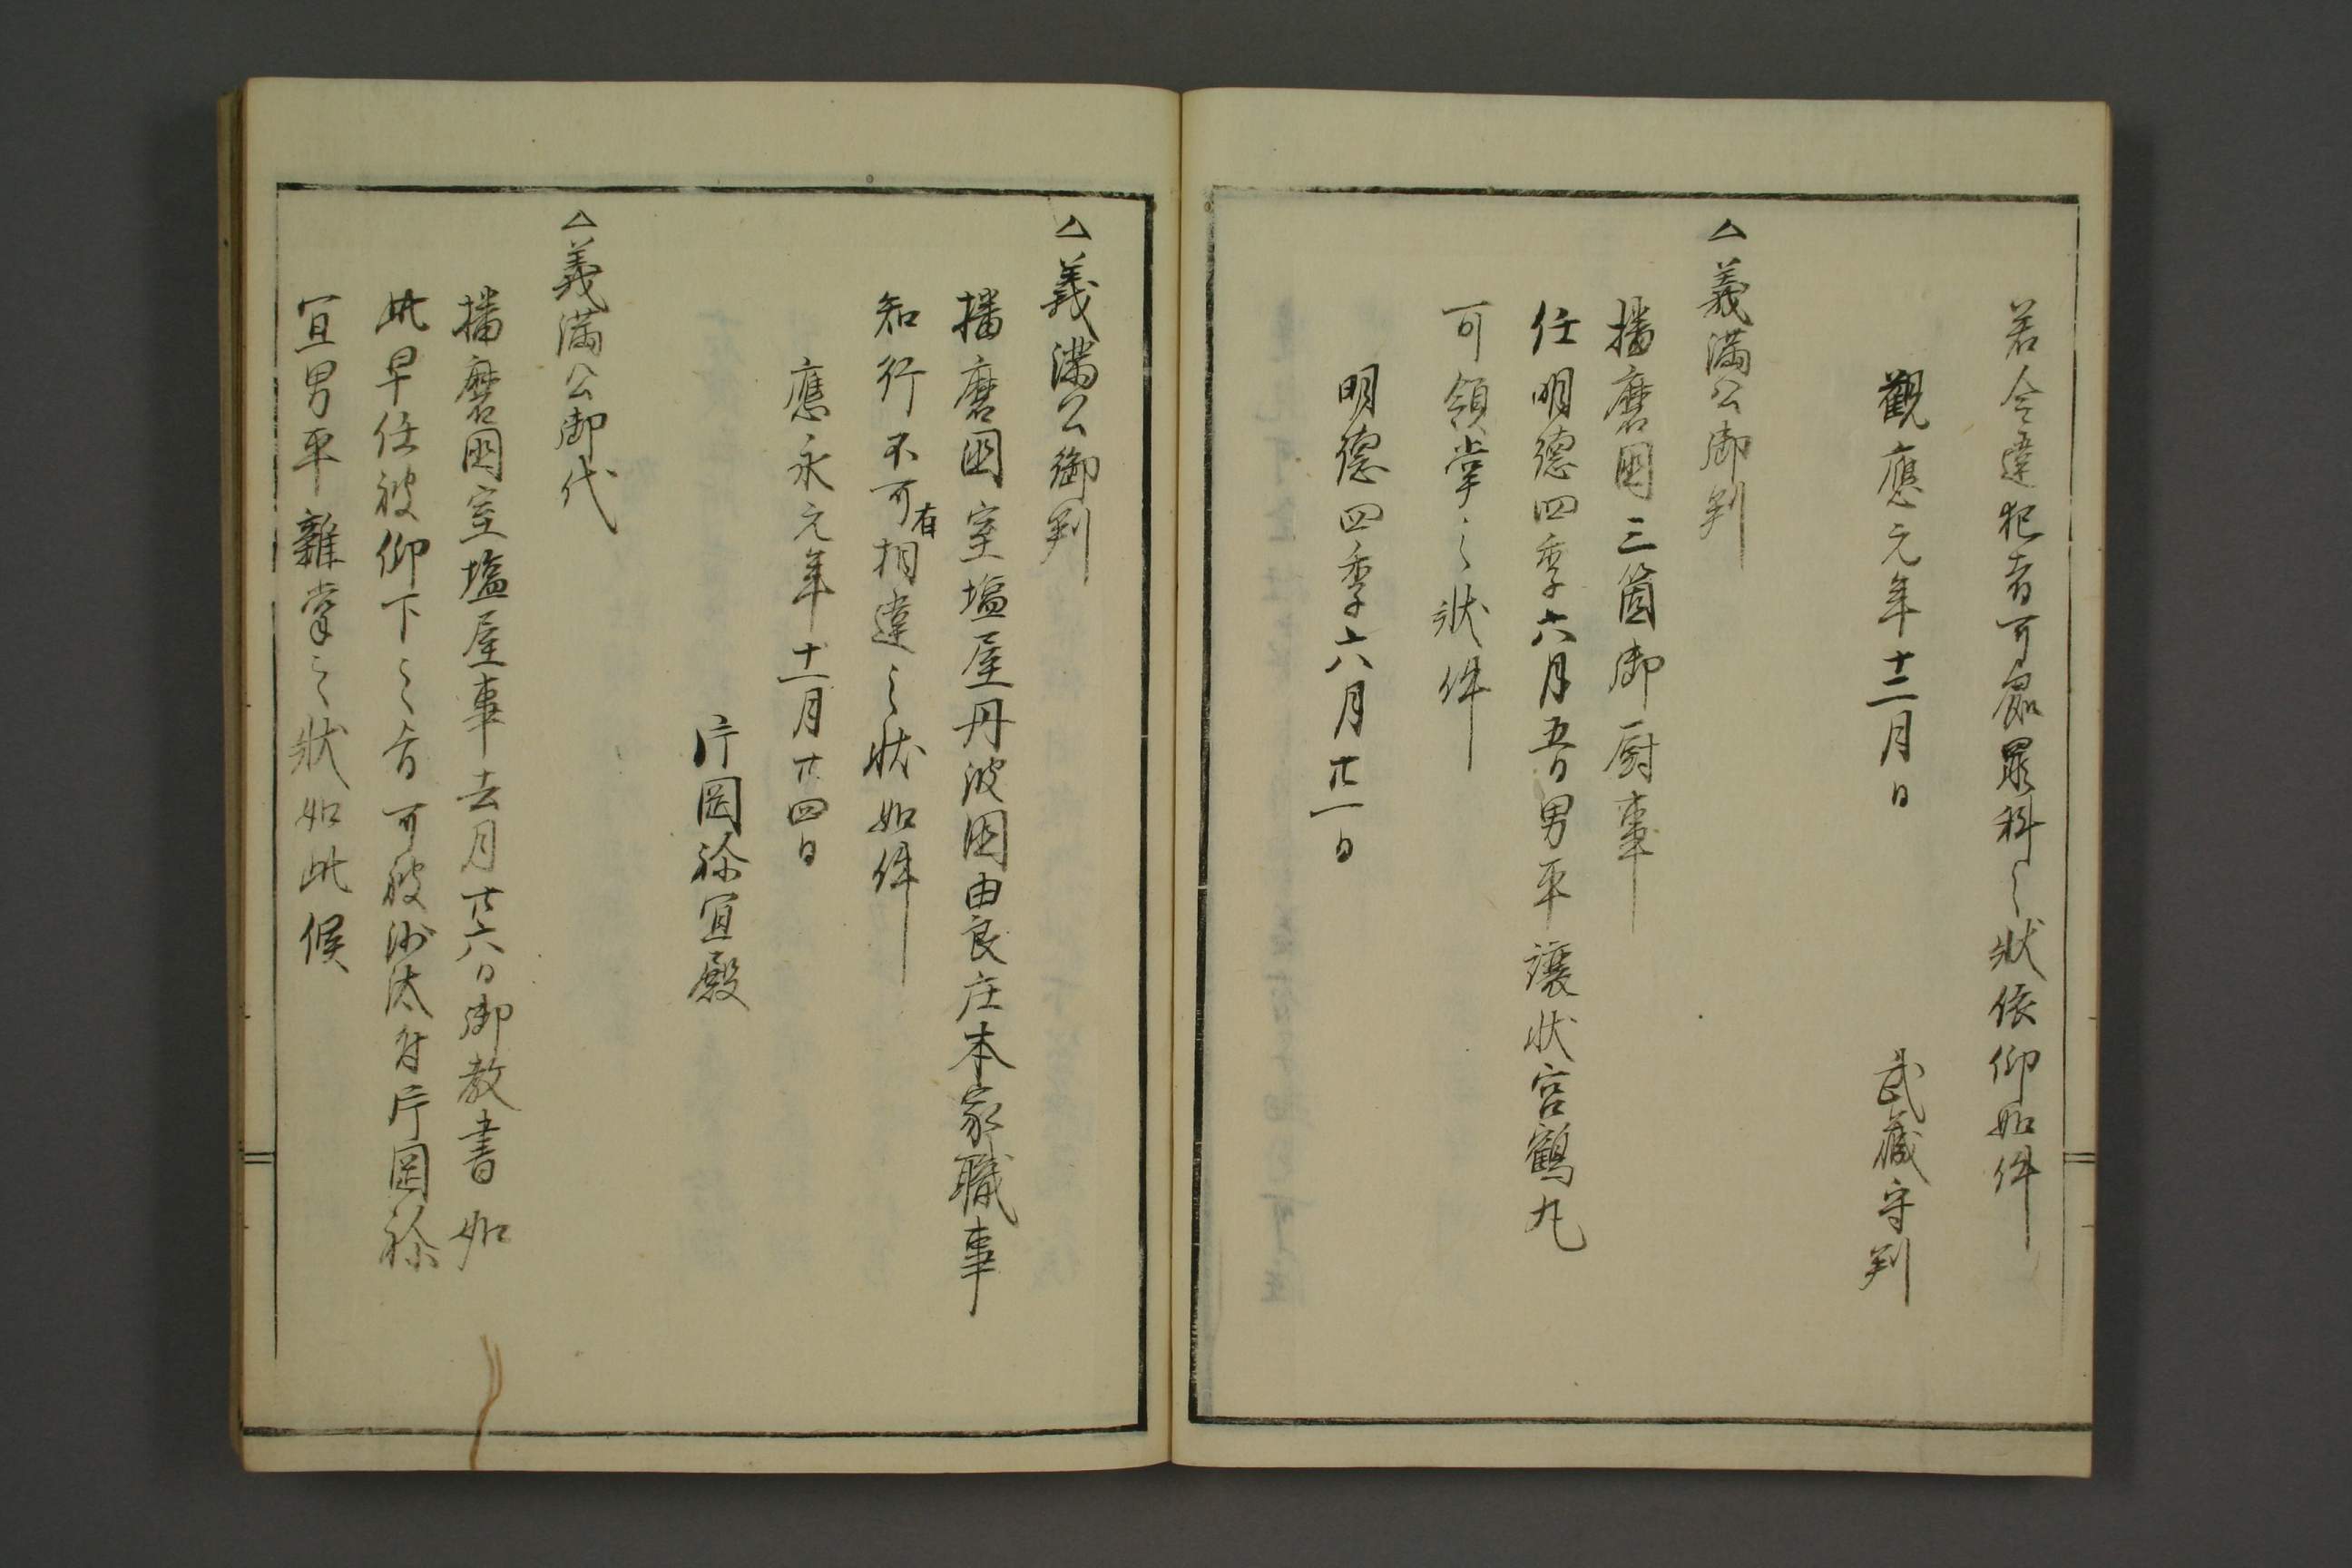 若令違犯者可處罪科之狀依仰如件
觀應元年十二月日　武藏守判
△義滿公御判
播磨国三箇御厨事
任明德四季六月五日男平讓狀宮鶴丸
可領掌之狀件
明德四季六月廿一日
△義滿公御判
播磨国室塩屋丹波国由良庄本家職事
知行不可有相違之狀如件
應永元年十一月廿四日
片岡祢宜殿
△義滿公御代
播磨国室塩屋事去月廿六日御教書如
此早任被仰下之旨可被沙汰付片岡祢
宜男平雜掌之狀如此候